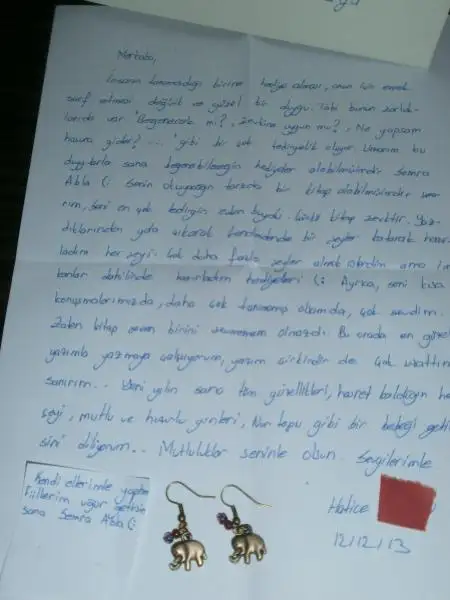 Merhaba,
İnsanın tanımadığı birine hediye alması, onun için emek
sarf etmesi değişik ve güzel bir duygu. Tabi bunun zorluk-
larıda var 'Beğenecek mi?, Zevkine uygun mu?, Ne yapsam
hoşuna gider? ...' gibi bir çok tedirginlik oluyor. Umarım bu
duygularla sana beğenebileceğin hediyeler alabilmişimdir Semra
Abla (: Senin okuyacağın tarzda bir kitap alabilmişimdir uma-
rım, beni en çok tedirgin eden buydu. Çünkü kitap zevktir. Yaz-
dıklarından yola çıkarak kendimdende bir şeyler katarak hazır-
ladım her şeyi. Çok daha fazla şeyler almak isterdim ama
dahilinde hazırladım hediyeleri (: Ayrıca, seni kısa
konuşmalarımızda, daha çok tanımamış olsamda, çok sevdim.
Zaten kitap seven birini sevmemem olmazdı. Bu arada en güzel
yazımla yazmaya çalışıyorum, yazım çirkindir de. Çok uzattım
sanırım.. Yeni yılın sana tüm güzellikleri, hasret kaldığın he
şeyi, mutlu ve huzurlu günleri, Nur topu gibi bir bebeği geti
sini diliyorum.. Mutluluklar seninle olsun. Sevgilerimle
Hatice
12/12/13
Kendi ellerimle yaptım
Fillerim uğur getirsin
sana Semra Abla (: